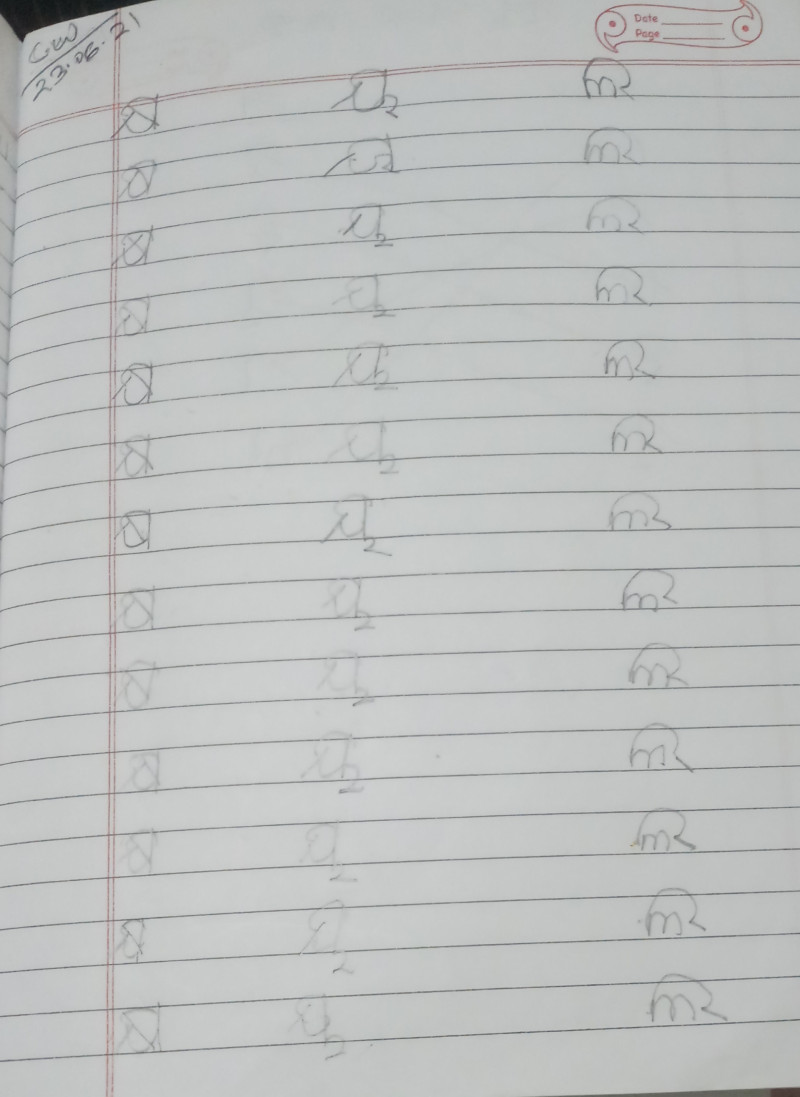 C.W
23.06.21
Date
Page
କ୍ଷ ୟ ଲ
କ୍ଷ ୟ ଲ
କ୍ଷ ୟ ଲ
କ୍ଷ ୟ ଲ
କ୍ଷ ୟ ଲ
କ୍ଷ ୟ ଲ
କ୍ଷ ୟ ଲ
କ୍ଷ ୟ ଲ
କ୍ଷ ୟ ଲ
କ୍ଷ ୟ ଲ
କ୍ଷ ୟ ଲ
କ୍ଷ ୟ ଲ
କ୍ଷ ୟ ଲ